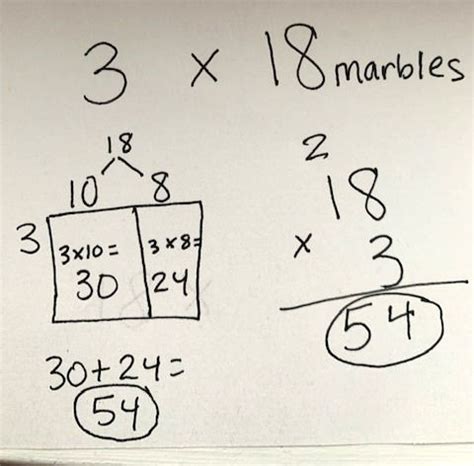 3 x 18 marbles
18
10 8
3
3x10= 3x8=
30 24
30+24=
54
2
18
x 3
54